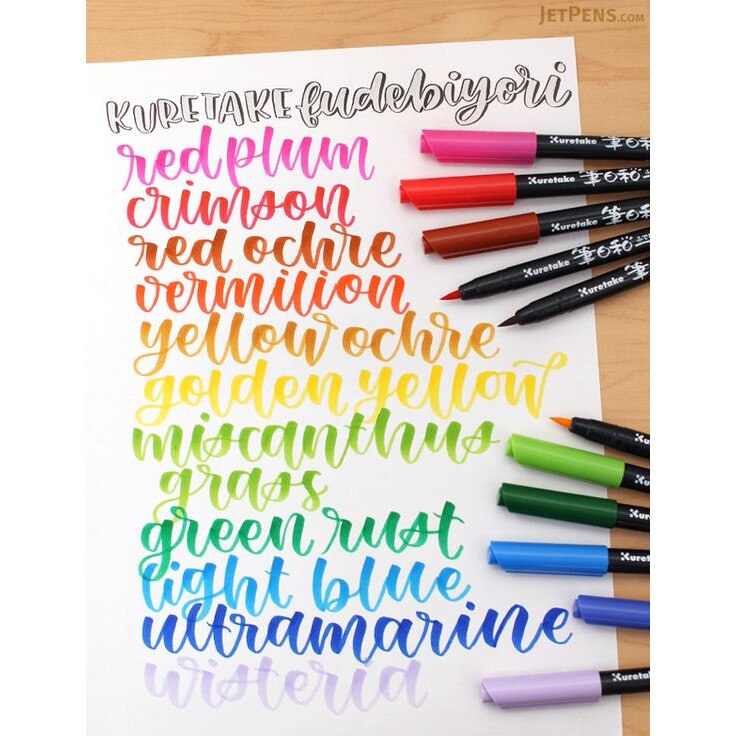 JETPENS.COM
KURETAKE fudebiyori
red plum
crimson
red ochre
vermilion
yellow ochre
golden yellow
miscanthus
grass
green rust
light blue
ultramarine
wisteria
Kuretake 筆日和
Kuretake 筆日和
Kuretake 筆日和
Kuretake 筆日和 ふで
Kuretake 筆
Kure
Kuretake
Kuretake
Kuretake
Kuretake